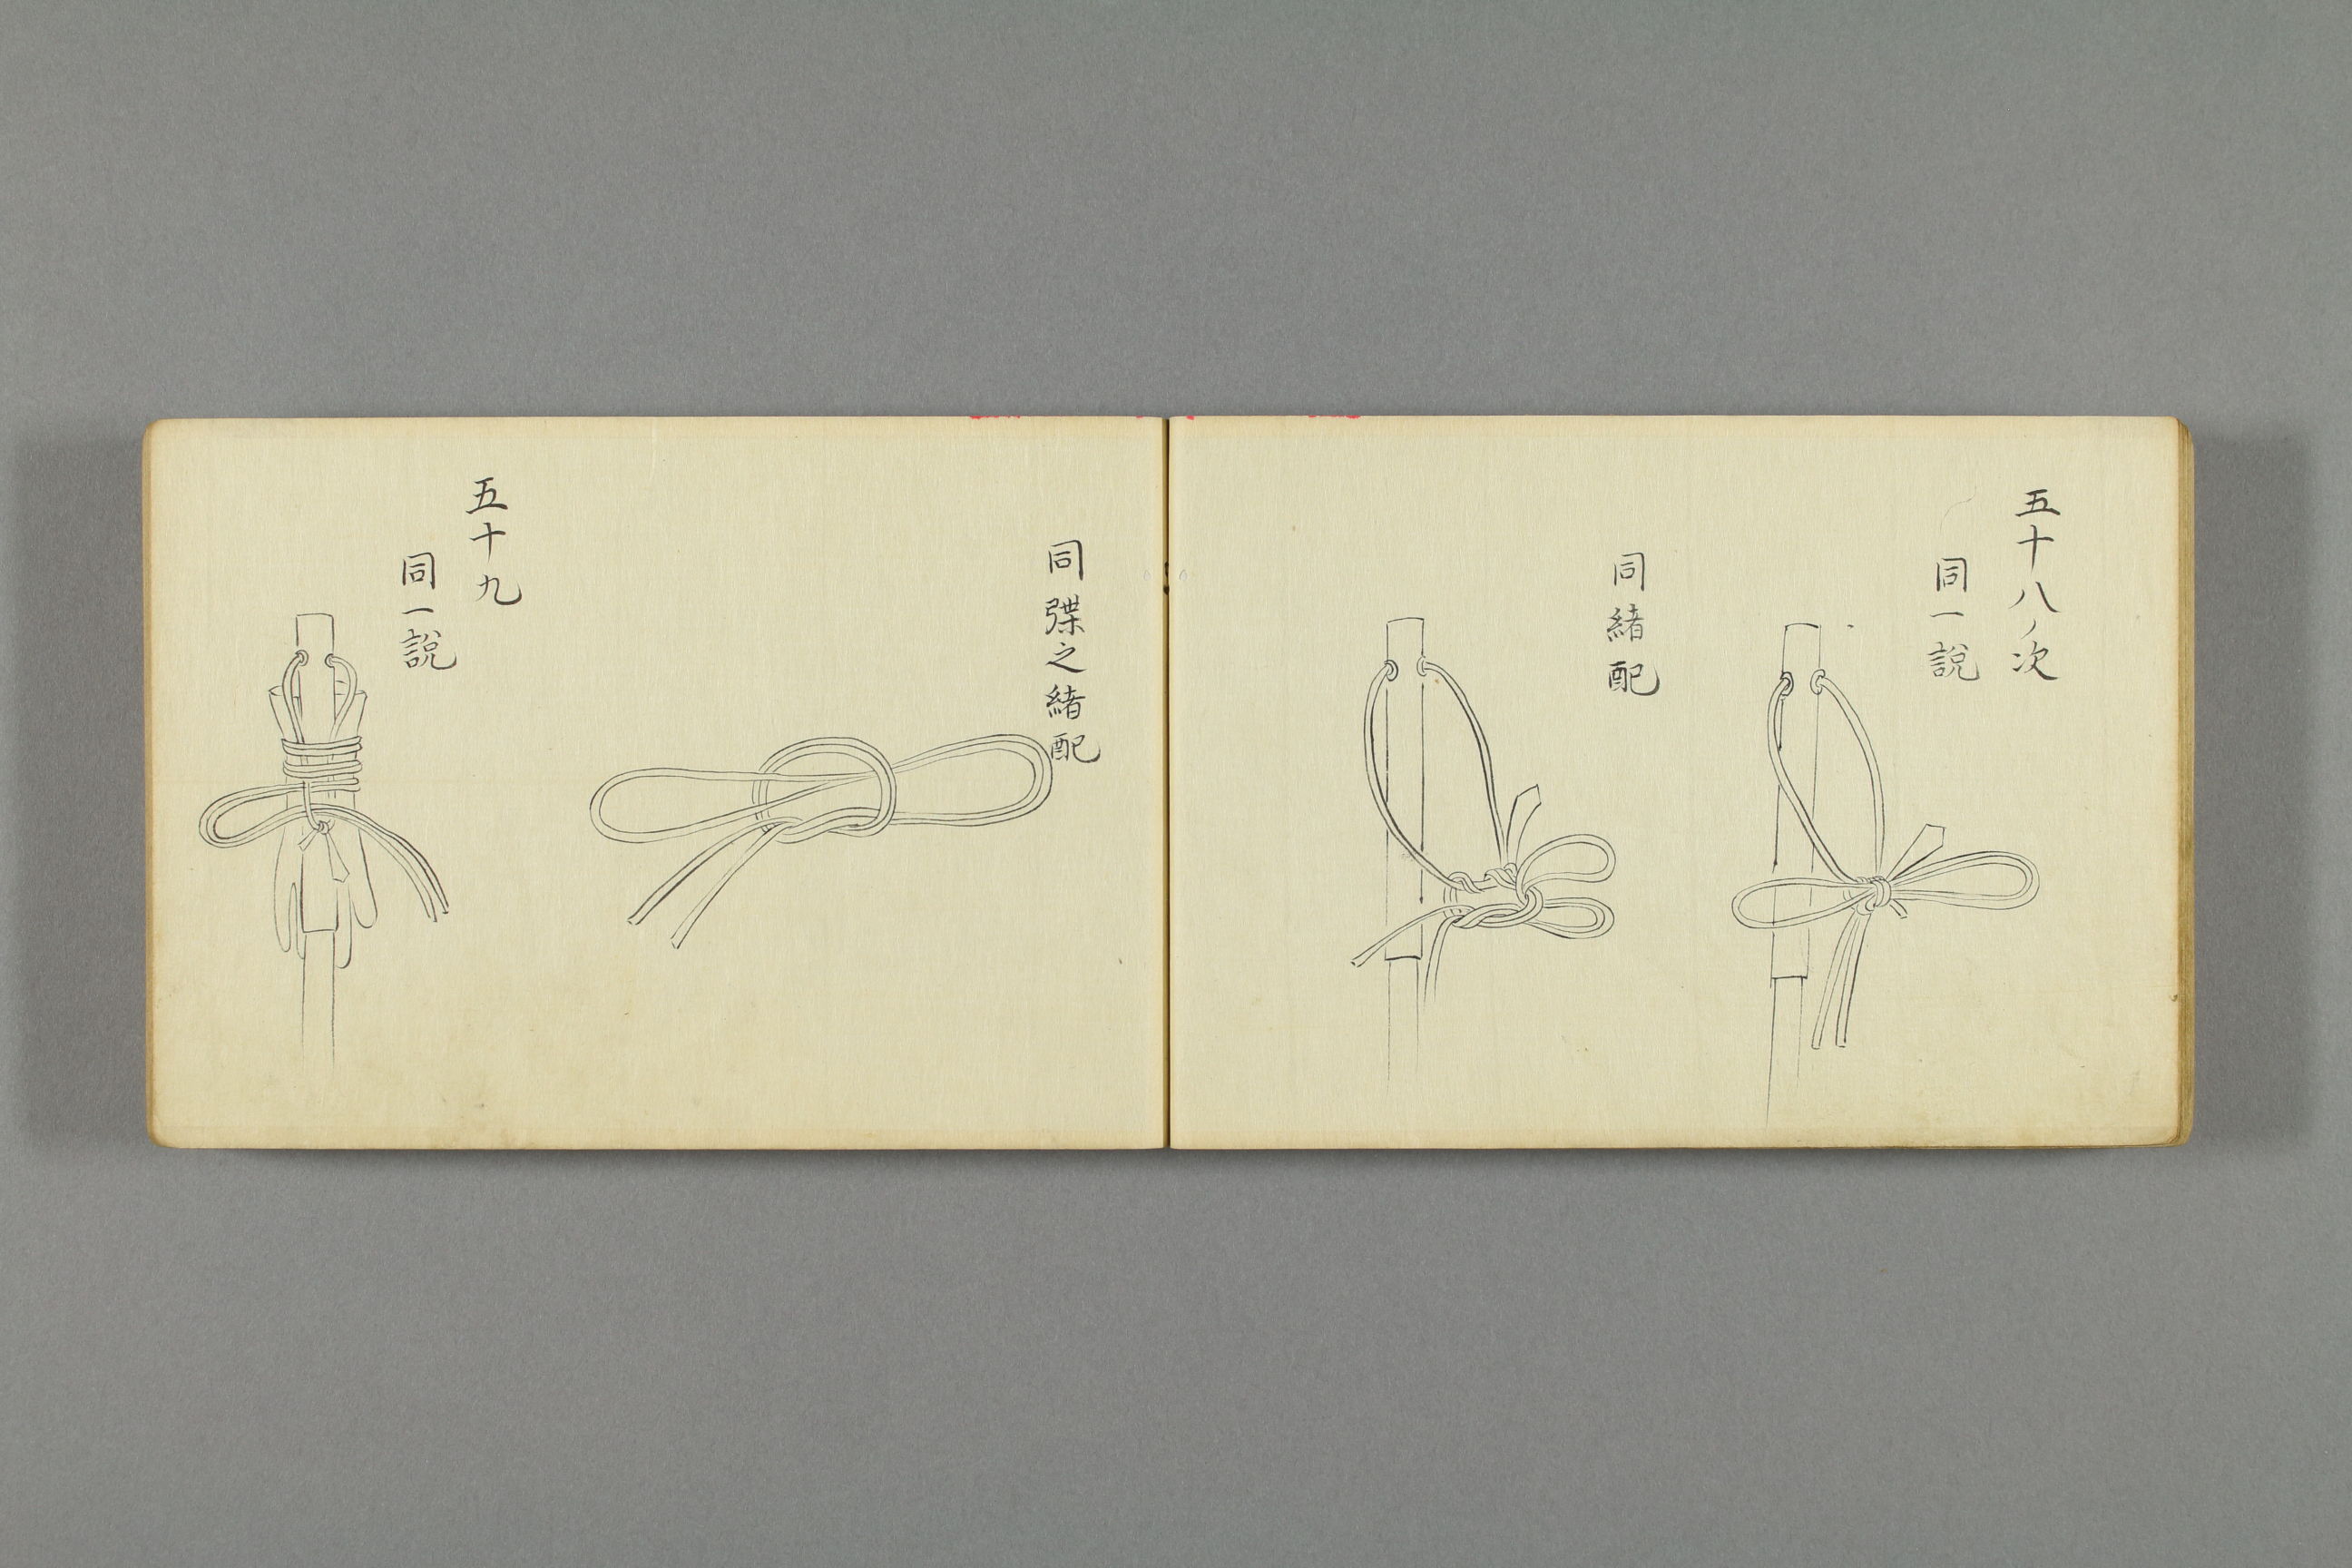 五十八ノ次
同一說
同緒配
同弽之緒配
五十九
同一說